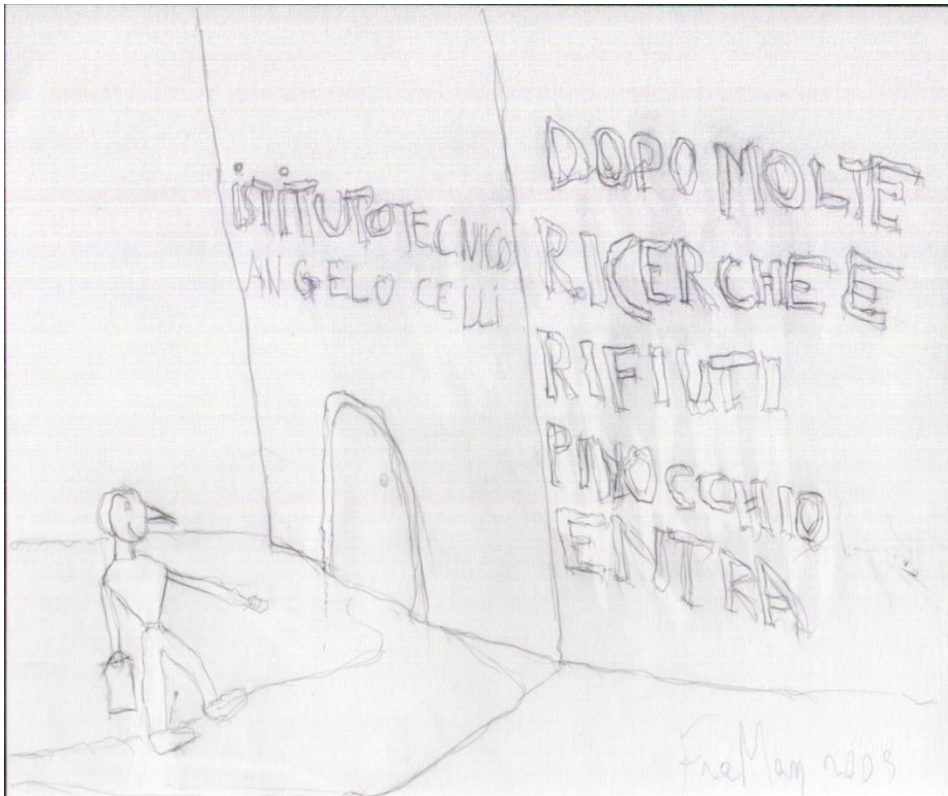 iSTiTUTO TECNICO
ANGELO CELLI
DOPO MOLTE
RICERCHE E
RIFIUTI
PINOCCHIO
ENTRA